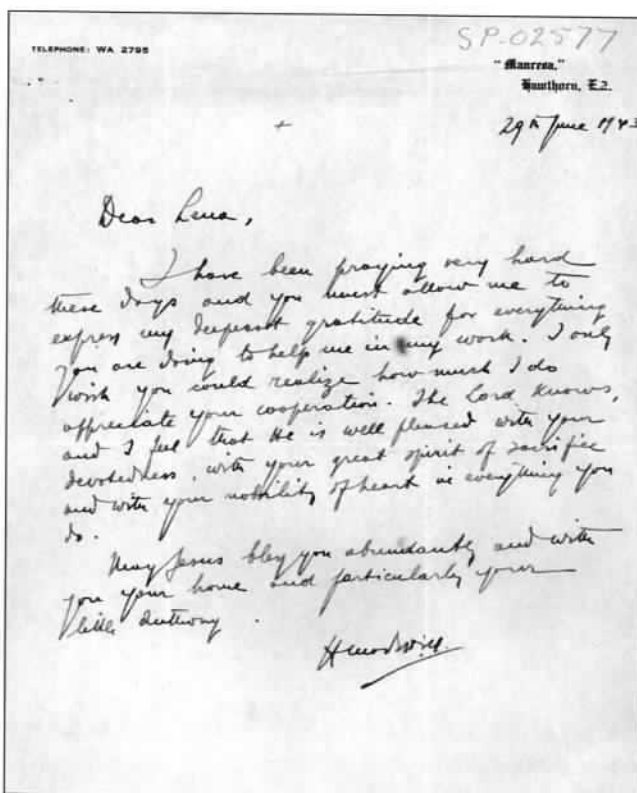 SP-02577
TELEPHONE: WA 2795
"Manresa,"
Hawthorn, E.2.
29th June 1943
Dear Lena,
I have been praying very hard
these days and you must allow me to
express my deepest gratitude for everything
you are doing to help me in my work. I only
wish you could realize how much I do
appreciate your cooperation. The Lord knows,
and I feel that He is well pleased with your
devotedness, with your great spirit of sacrifice
and with your nobility of heart in everything you
do.
May Jesus bless you abundantly and with
you your home and particularly your
little Anthony.